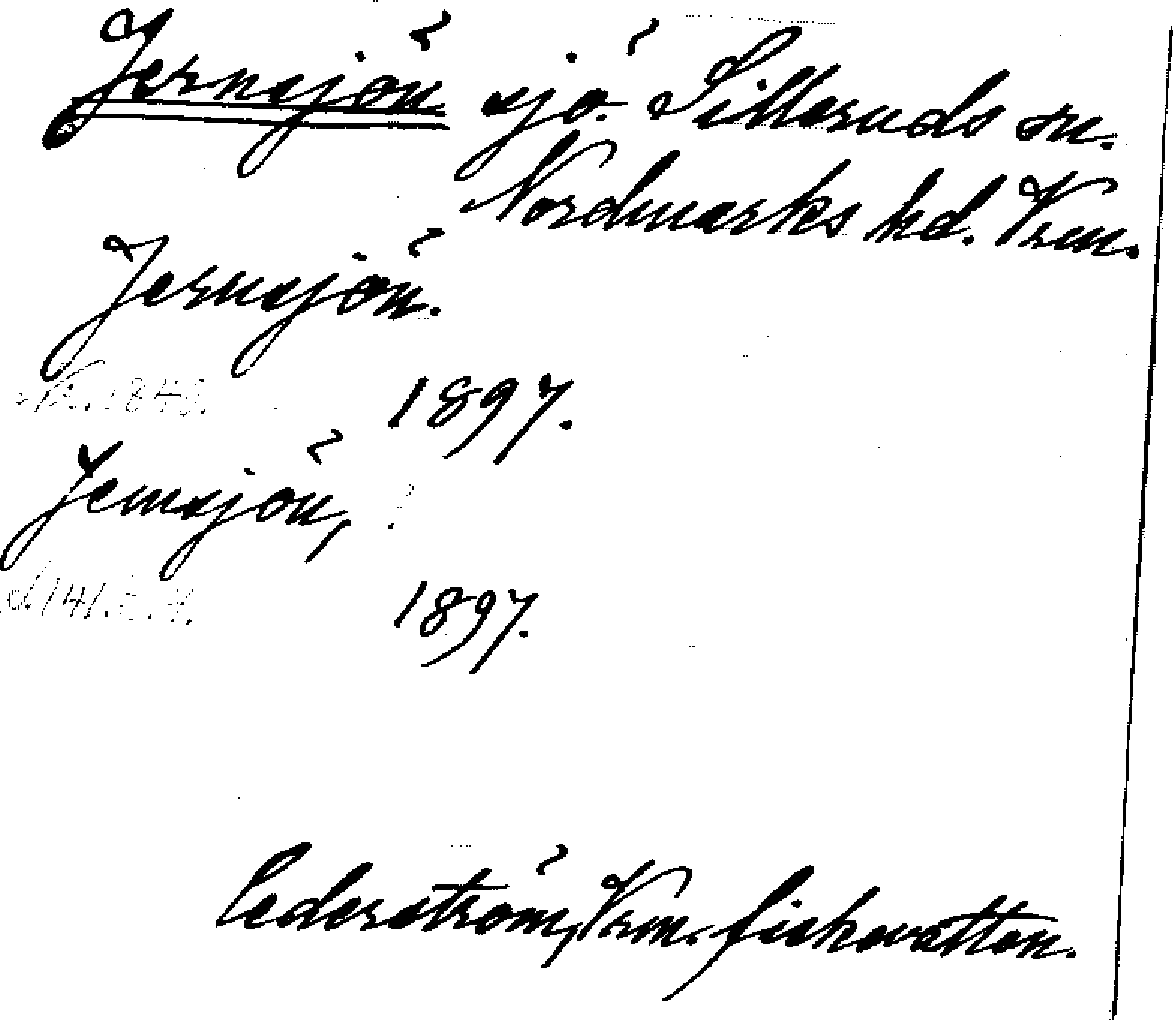 Jernsjön sjö. Silleruds sn.
Nordmarks hd. Vrm.
Jernsjön.
1897.
Jernsjön,
1897.
Cederström, Vrm. fiskevatten.